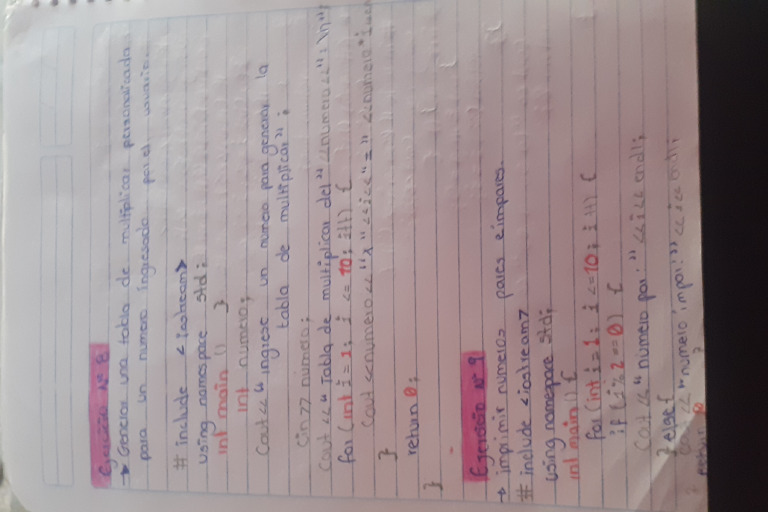 Ejercicio Nº 8
→ Generar una tabla de multiplicar personalizada
para un numero ingresado por el usuario.
# include <iostream>
using namespace std;
int main () }
int numero;
Cout << " ingrese un numero para generar la
tabla de multiplicar";
Cin >> numero;
Cout << "Tabla de multiplicar del" <<numero<<":\n";
for (int i = 1; i <= 10; i++) {
Cout <<numero<< "x" <<i<< "=" <<numero*i<<
}
return 0;
}
Ejercicio Nº 9
→ imprimir numeros pares e impares.
# include <iostream>
using namespace std;
int main () {
for (int i = 1; i <= 10; i++) {
if (i % 2 == 0) {
Cout << "número par:" << i << endl;
} else {
Cout << "numero impar:" << i << endl;
}
return 0